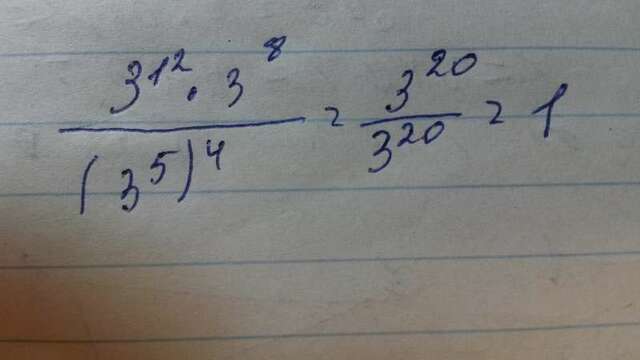 3^12 · 3^8 / (3^5)^4 = 3^20 / 3^20 = 1